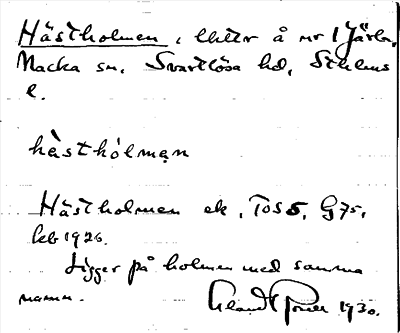 Hästholmen, lht er å nr 1 Järla,
Nacka sn, Svartlösa hd, Sthlms
l.
hàsthól̀man
Hästholmen ek, TOS5, G75,
leb 1926.
Ligger på holmen med samma
namn. 1930.